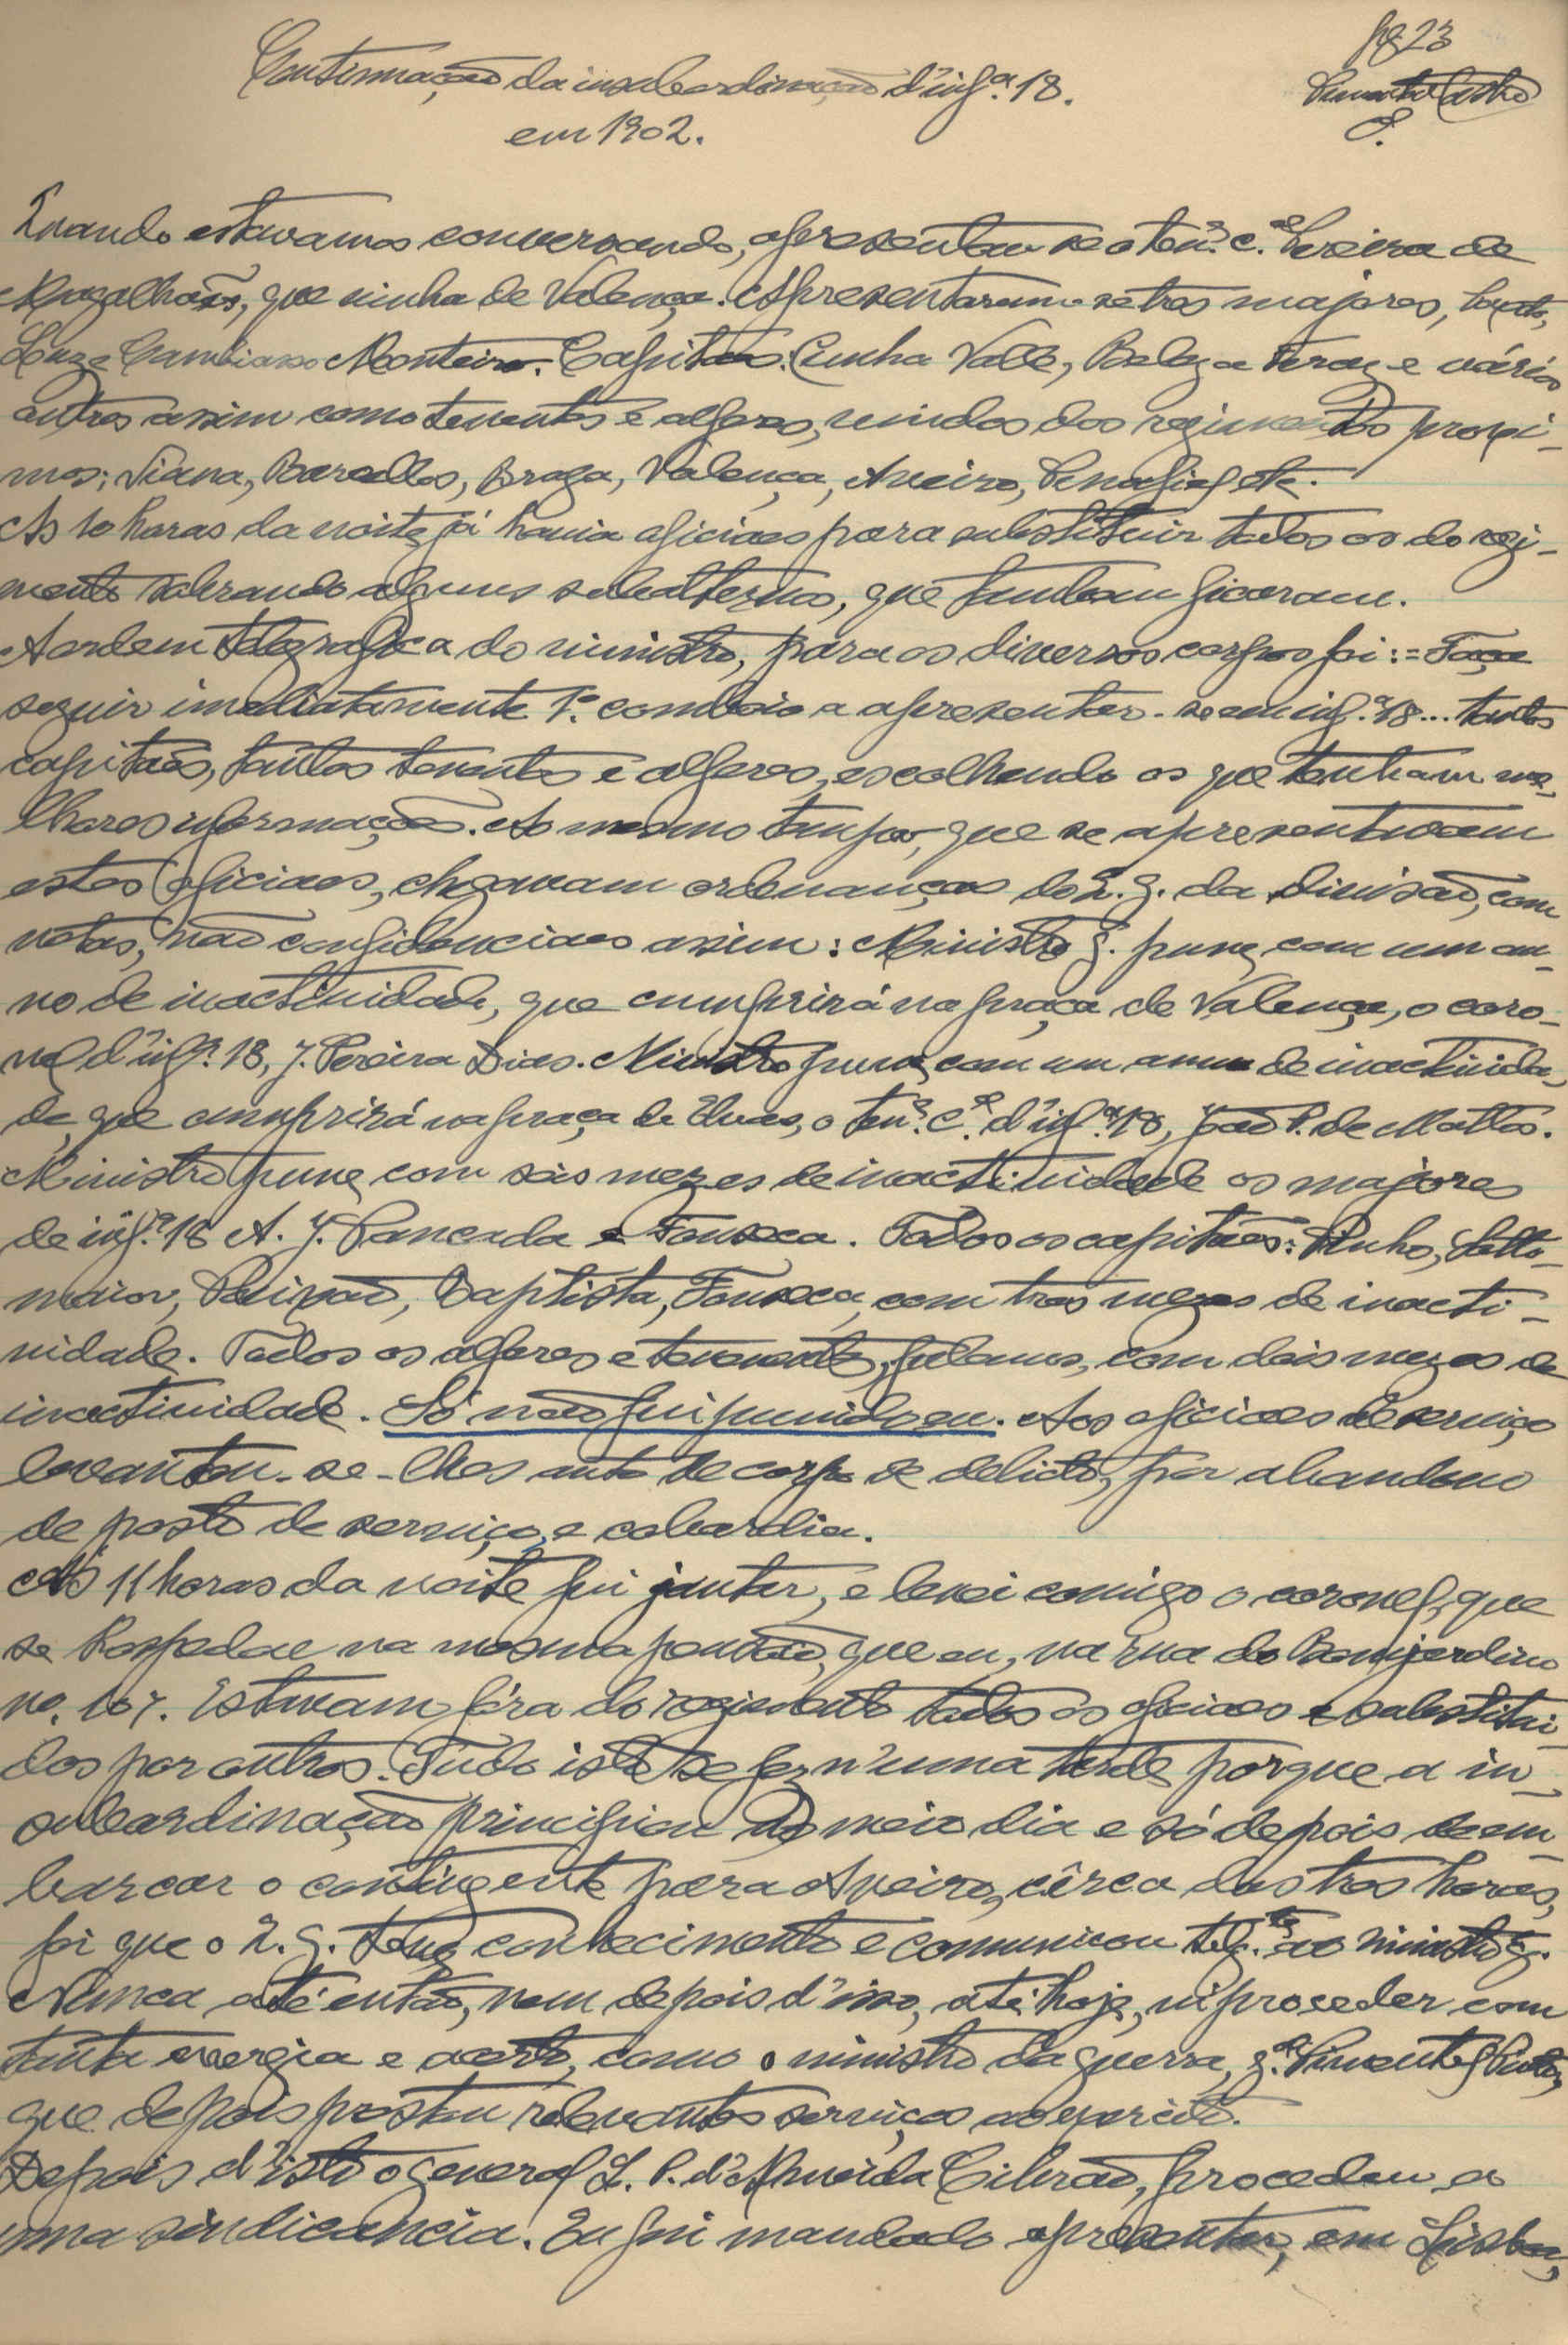 fg. 23
Continuação da insubordinação d'inf.ª 18.
em 1902.
Quando estavamos conversando, apresentou-se o ten.e c.el Pereira de
Magalhães, que vinha de Valença. Apresentaram-se tres majores,
Monteiro. Capitães: Cunha Valle, Beleza Ferraz e vários
outros assim como tenentes e alferes, vindos dos regimentos proxi-
mos: Viana, Barcellos, Braga, Valença, Aveiro, Penafiel etc.
As 10 horas da noite já havia oficiaes para substituir todos os do regi-
mento sobrando alguns subalternos, que tambem ficaram.
A ordem telegrafica do ministro, para os diversos corpos foi: = Faça
seguir imediatamente 1.º comboio a apresentar-se em inf.ª 18... tantos
capitães, tantos tenentes e alferes, escolhendo os que tenham me-
lhores informações. Ao mesmo tempo, que se apresentavam
estes oficiaes, chegavam ordenanças do Q. G. da divisão, com
notas, não confidenciaes assim: Ministro g. pune com um an-
no de inactividade, que cumprirá na praça de Valença, o coro-
nel d'inf.ª 18, J. Pereira Dias. Ministro pune, com um anno de inactivida-
de, que cumprirá na praça de Elvas, o ten.e c.el d'inf.ª 18, João P. de Mattos.
Ministro pune com seis mezes de inactividade os majores
de inf.ª 18 A. J. Pancada e Fonseca. Todos os capitães: Pinho, Sotto-
maior, Paixão, Baptista, Fonseca, com tres mezes de inacti-
vidade. Todos os alferes e tenentes, fulanos, com dois mezes de
inactividade. Só não fui punido eu. Aos oficiaes de serviço
levantou-se-lhes auto de corpo de delicto, por abandono
de posto de serviço, e cobardia.
Às 11 horas da noite fui jantar, e levei comigo o coronel, que
se hospedou na mesma pensão, que eu, na rua do Bomjardim
no. 107. Estavam fóra do regimento todos os oficiaes e substitui-
dos por outros. Tudo isto se fez n'uma tarde, porque a in-
subordinação principiou ao meio dia e só depois de em-
barcar o contingente para Aveiro, cêrca das tres horas,
foi que o Q. G. teve conhecimento e comunicou telg.te ao ministro g.
Nunca até então, nem depois d'isso, até hoje, vi proceder com
tanta energia e acerto, como o ministro da guerra, g.al Pimentel Pinto,
que depois prestou relevantes serviços ao exercito.
Depois d'isto o general L. P. d'Almeida Cibrão, procedeu a
uma sindicancia. Eu fui mandado apresentar, em Lisboa,